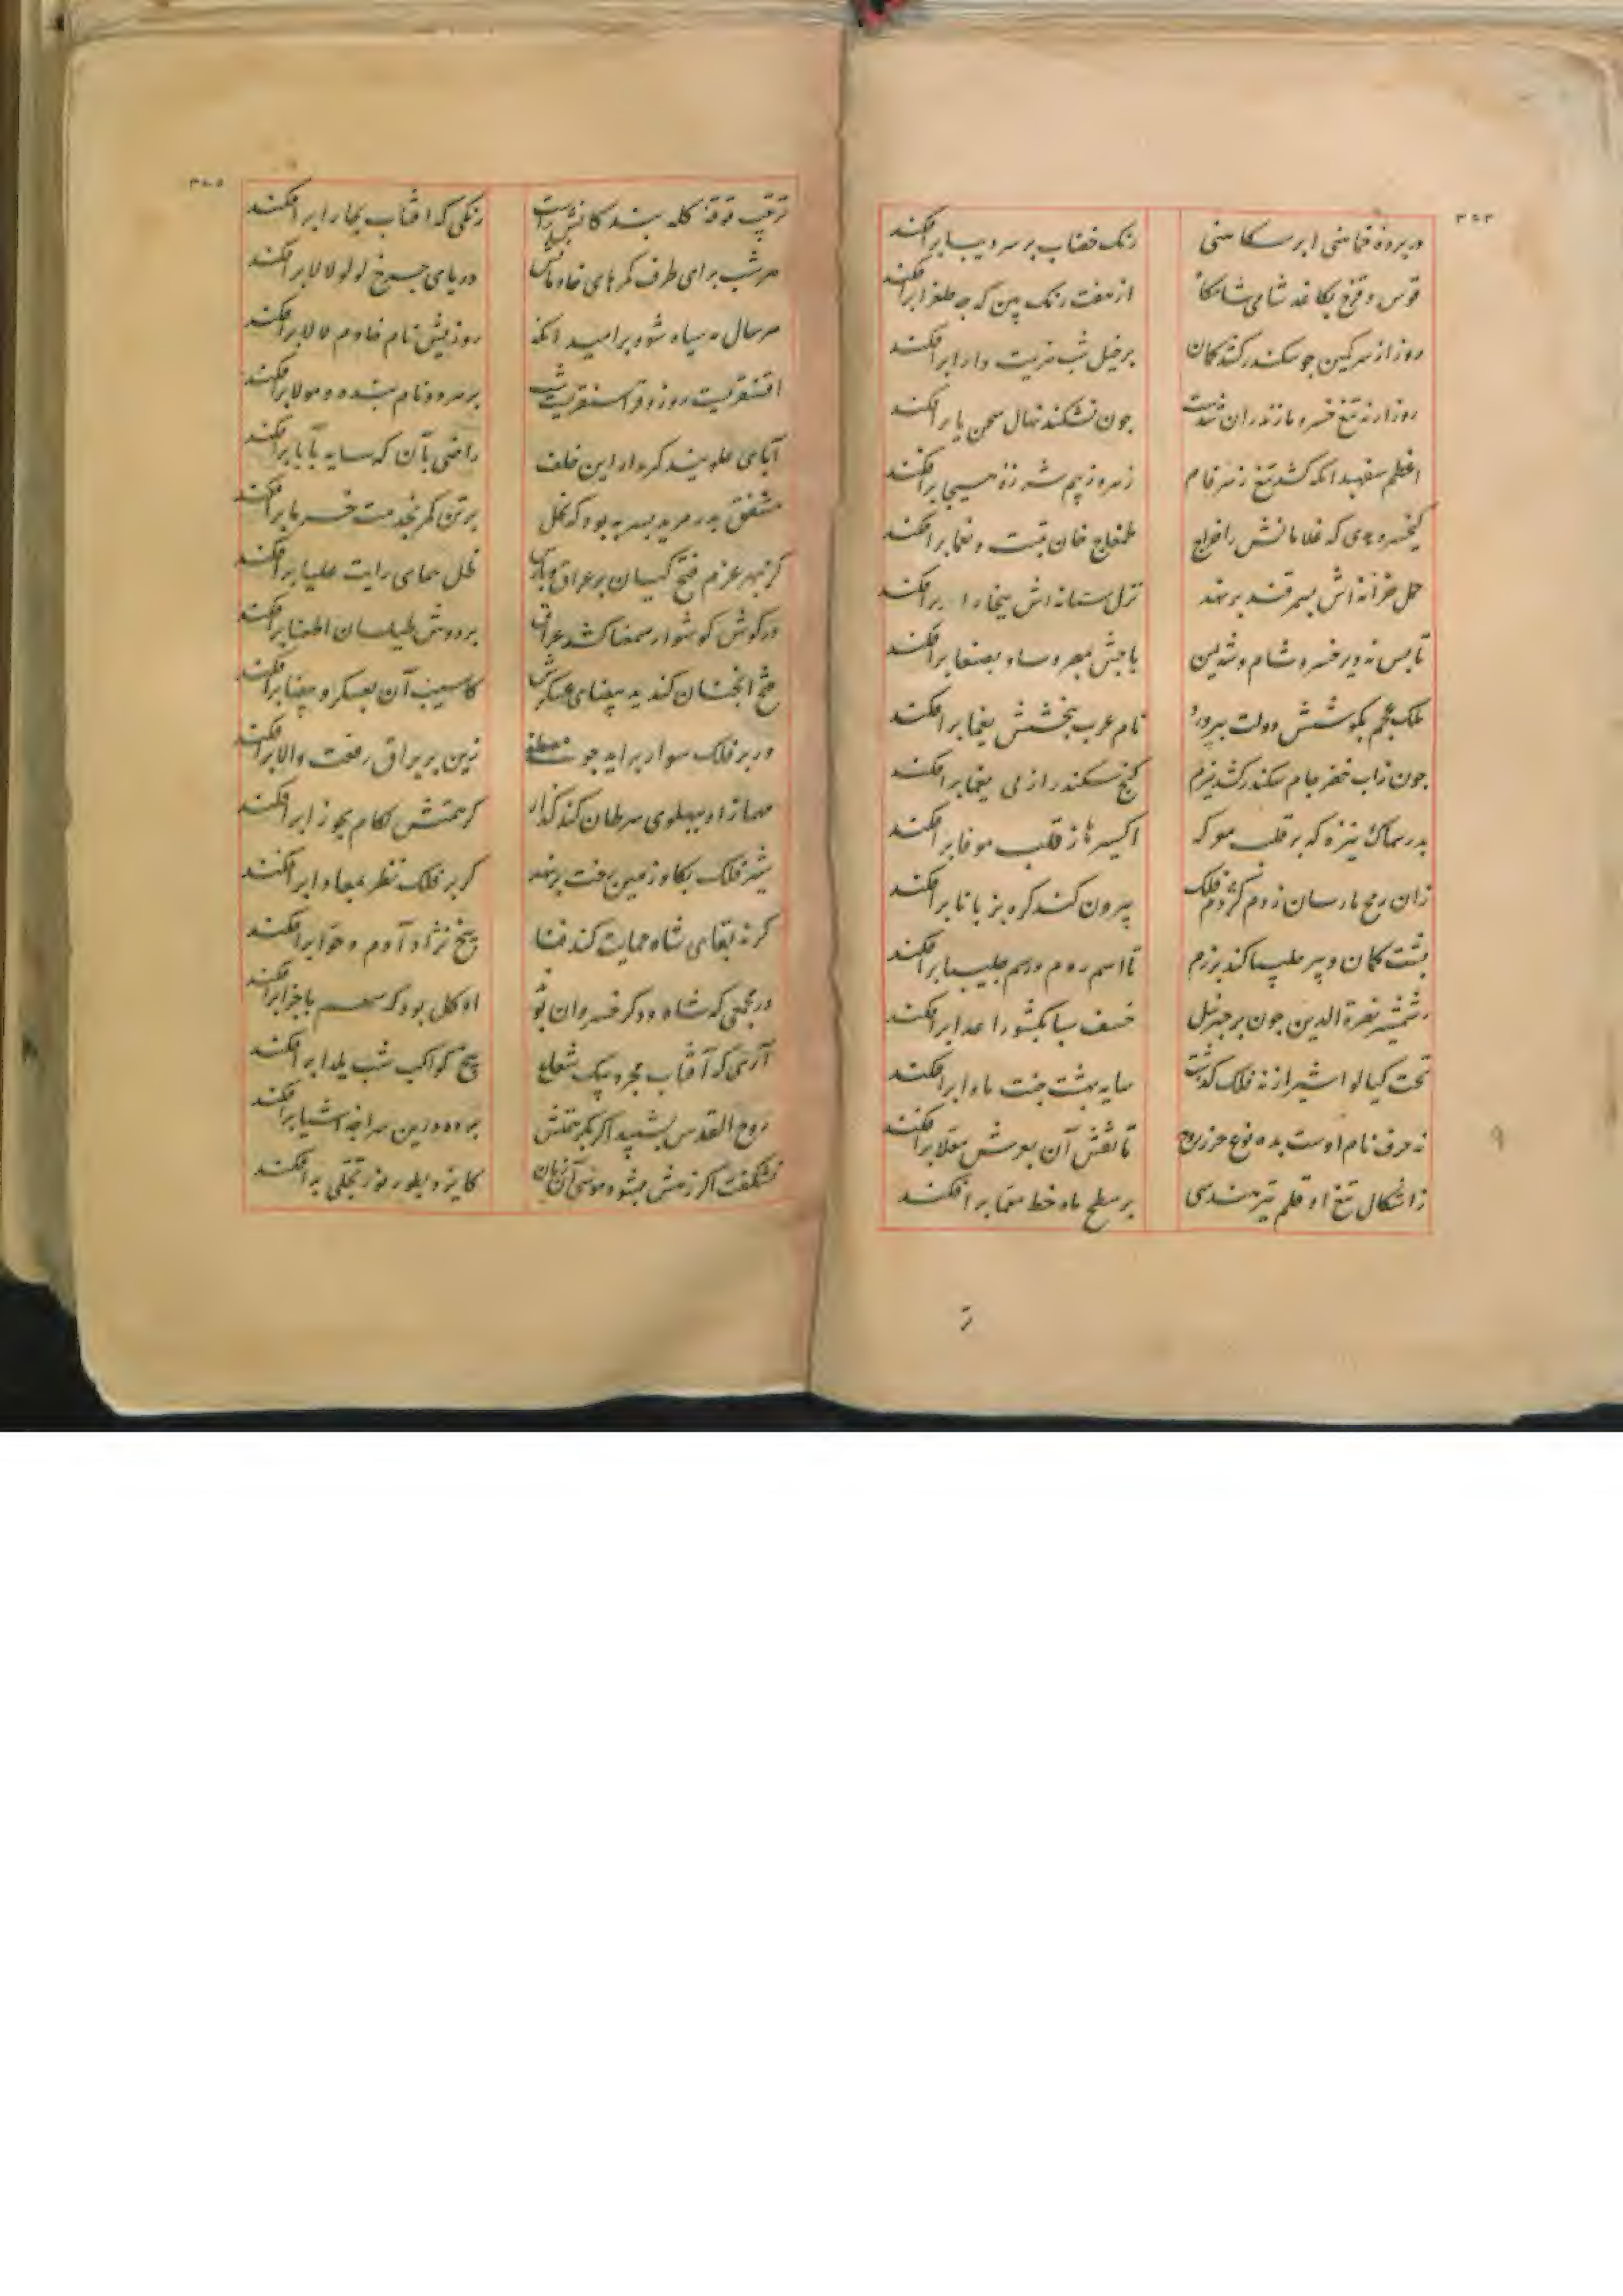 رنک خضاب بر سر دیبا برافکند
قوس و قزح بکاغد شامی شامکا
از هفت رنک بین که چه طغرا برافکند
بر خیل شب هزیمت دارا برافکند
روز ار نه تیغ خسرو مازندران شدست
چون نشکند نهال سحن یا برافکند
اعظم سفهبد انکه کشد تیغ زهر فام
زهره ز بیم شرزه مسیحا برافکند
کیخسرو هدی که غلامانش را خراج
طمغاج خان تبت و یغما برافکند
حمل خزانه اش بسمرقند بر نهند
نزل ستانه اش ببخارا برافکند
تا بس نه دیر خسرو شام و شه یمن
باجش بمصر و ساو بصنعا برافکند
ملک عجم بکوشش دولت بپرورد
نام عرب ببخشش یغما برافکند
چون زاب خضر جام سکندر کشد ببزم
کنج سکندر از پی یغما برافکند
بدر سماک نیزه که بر قلب موکر
زان رمح مارسان ز دم کژدم فلک
بیرون کند کره بزبانا برافکند
پشت کمان و تیر چلیپا کند برزم
تا اسم روم و رسم چلیپا برافکند
شمشیر نصرة الدین چون پر جبرئیل
خسف سبا بکشور اعدا برافکند
تحت کیالواشیر از نه فلک کذشت
سایه بهشت جنت ماوا برافکند
نه حرف نام اوست بده نوع حرز روح
تا نقش آن بعرش معلا برافکند
ز اشکال تیغ او قلم تیر هندسی
بر سطح ماه خط معما برافکند
رنکی که افتاب بخارا برافکند
هر شب برای طرف کمرهای خادمانش
دریای چرخ لولو لالا برافکند
هر سال مه سیاه شود بر امید انکه
روزیش نام خادم لالا برافکند
اقسنقریست روز و قراسنقریست شب
بر هر دو نام بنده و مولا برافکند
آبای علویند کروار این خلف
راضی بآن که سایه بآبا برافکند
مشفق پدر مرید پسر به بود که نخل
بر تن کمر بخدمت خرما برافکند
کر بهر عزم فتح کیان بر عراق و پارس
ظل همای رایت علیا برافکند
در کوش کوشوار سمعنا کشد عراق
بر دوش طیلسان اطعنا برافکند
فتح انچنان کند ید بیضای عسکرش
کاسیب آن بعسکر و بیضا برافکند
ور بر فلک سوار براید چو مصطفی
زین بر براق رفعت والا برافکند
مهماز او بپهلوی سرطان کند کذار
کر همتش لکام بجوزا برافکند
شیر فلک بکاو زمین رخت بر نهد
کر بر فلک نظر بمعادا برافکند
کر نه بقای شاه حمایت کند فنا
بیخ نژاد آدم و حوا برافکند
در جمعی که شاه و دکر خسروان بود
او کل بود که سهم باجزا برافکند
آری که آفتاب مجرد بیک شعاع
بیخ کواکب شب یلدا برافکند
روح القدس بشیبد اکر بکر همتش
پرده درین سراچه اشیا برافکند
نشکفت اکر ز هش بشود موسی آن زمان
کایزد بطور نور تجلی برافکند